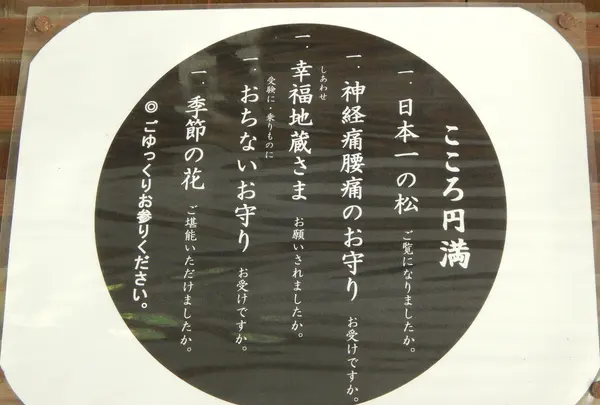 こころ円満
一. 日本一の松 ご覧になりましたか。
一. 神経痛腰痛のお守り お受けですか。
しあわせ
一. 幸福地蔵さま お願いされましたか。
受験に・乗りものに
一. おちないお守り お受けですか。
一. 季節の花 ご堪能いただけましたか。
◎ごゆっくりお参りください。